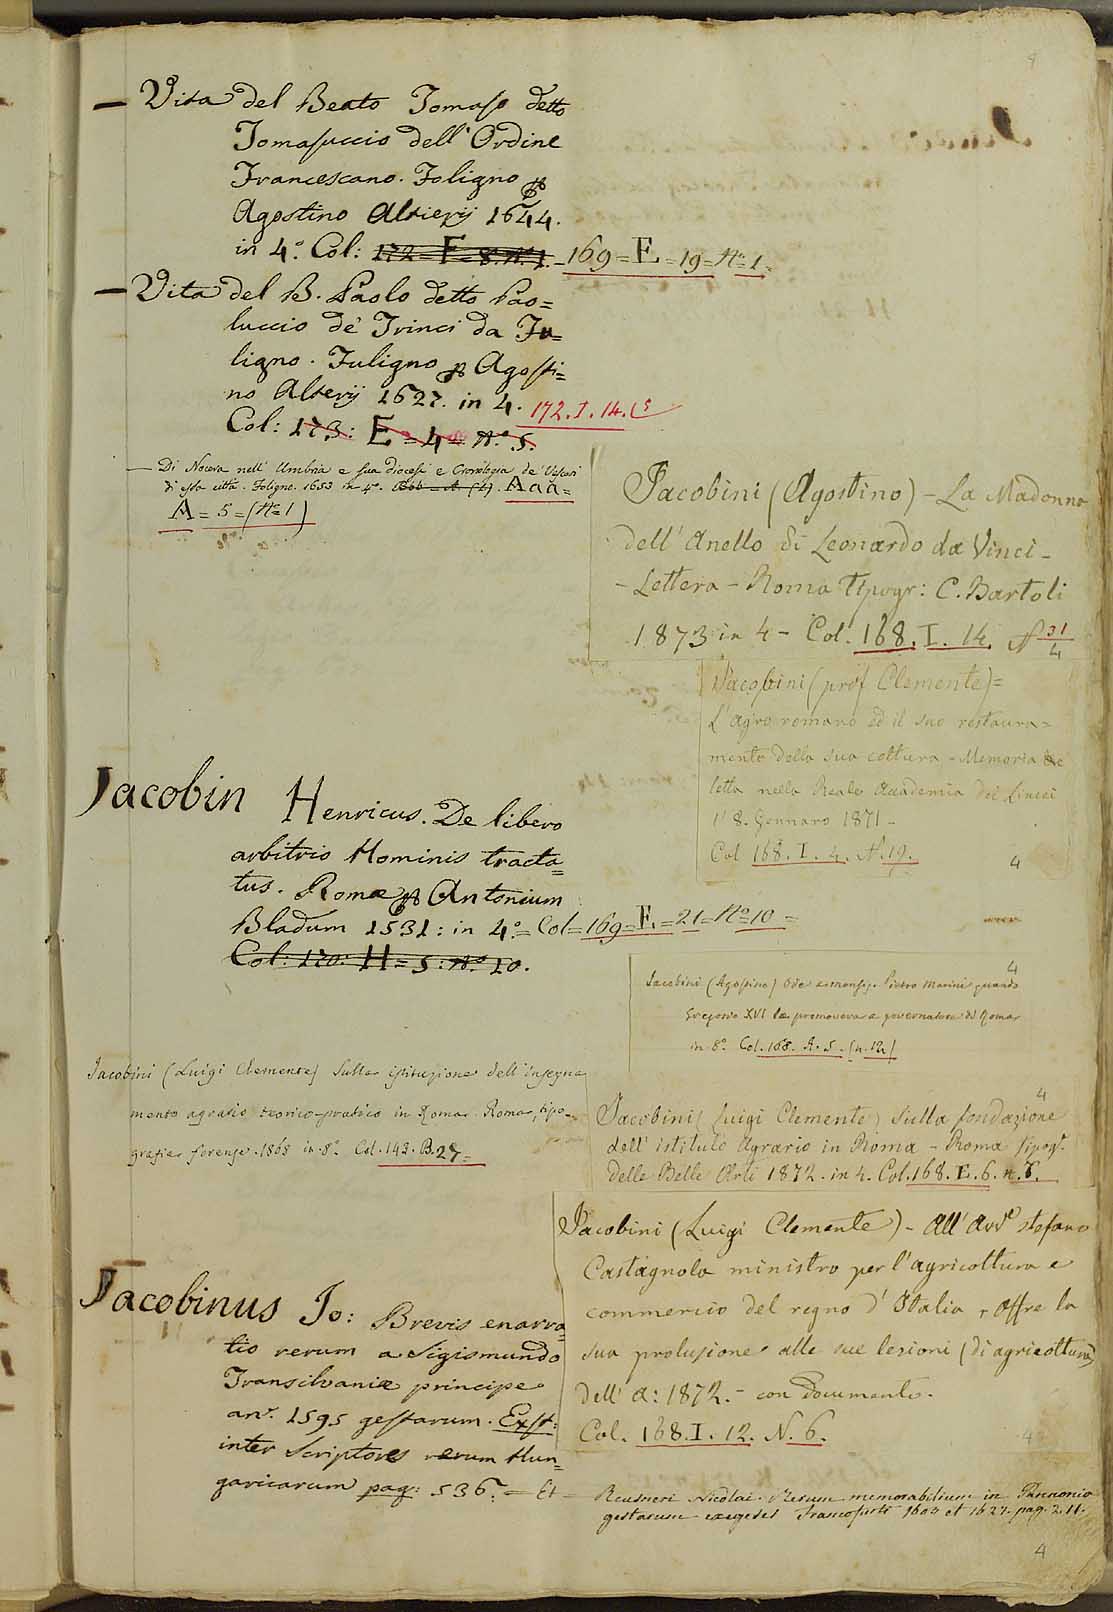 4
— Vita del Beato Tomaso detto
Tomasuccio dell'Ordine
Francescano. Foligno
Agostino Altierij 1644.
in 4.º Col: 172 = F = 8. N.º 1. - 169 = E = 19 = Nº = 1 =
— Vita del B. Paolo detto Pao=
luccio de' Trinci da Fu=
ligno. Fuligno Agosti=
no Alterij 1627. in 4. 172. I. 14. (5
Col: 173: E = 4 = N.º 5.
— Di Nocera nell'Umbria e sua diocesi e Cronologia de' Vescovi
di essa città. Foligno. 1653 in 4º. Aaa=
A = 5 = (Nº 1)
Jacobini (Agostino) - La Madonna
dell'Anello di Leonardo da Vinci -
- Lettera - Roma tipogr: C. Bartoli
1873 in 4 - Col. 168. I. 14. N 31/4
Jacobini (prof Clemente) =
L'Agro romano ed il suo restaura=
mento della sua coltura - Memoria
letta nella Reale Accademia dei Lincei
l'8. Gennaro 1871 -
Col 168. I. 4. N. 19.
4
Jacobin Henricus. De libero
arbitrio Hominis tracta=
tus. Romæ Antonium
Bladum 1531: in 4º = Col = 169 = E. = 21 = Nº 10 =
Col: 170: H = 5: Nº 10.
4
Jacobini (Agostino) Ode a monsig. Pietro Marini quando
Gregorio XVI lo promoveva a governatore di Roma
in 8º. Col. 168. A. 5. (n. 12)
Jacobini (Luigi Clemente) Sulla istituzione dell'insegna
mento agrario teorico-pratico in Roma. Roma, tipo-
grafia forense. 1868 in. 8º. Col. 143. B. 27 =
4
Jacobini (Luigi Clemente) Sulla fondazione
dell'istituto Agrario in Roma - Roma tipogr.
delle Belle Arti 1872. in 4. Col. 168. E. 6. n. 6.
Jacobini (Luigi Clemente) - All'Avv.º Stefano
Castagnola ministro per l'agricoltura e
commercio del regno d'Italia, offre la
sua prolusione alle sue lezioni (di agricoltura)
dell'a: 1872. - con Documenti.
Col. 168. I. 12. N. 6.
4
Jacobinus Jo: Brevis enarra=
tio rerum a Sigismundo
Transilvaniæ principe
anº. 1595 gestarum. Exst:
inter Scriptores rerum Hun=
garicarum pag: 536. = Et - Reusneri Nicolai. Rerum memorabilium in Pannonia
gestarum exegeses Francofurti 1603 et 1627. pag. 211.
4